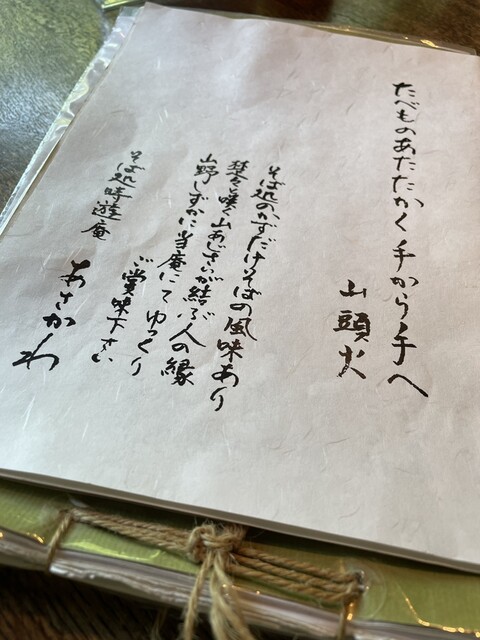 たべものあたたかく手から手へ
山頭火
そば処のかずだけそばの風味あり
楚々と咲く山あじさいが結ぶ人の縁
山野しずかに当庵にてゆっくり
ご賞味下さい
そば処時遊庵
あさかわ